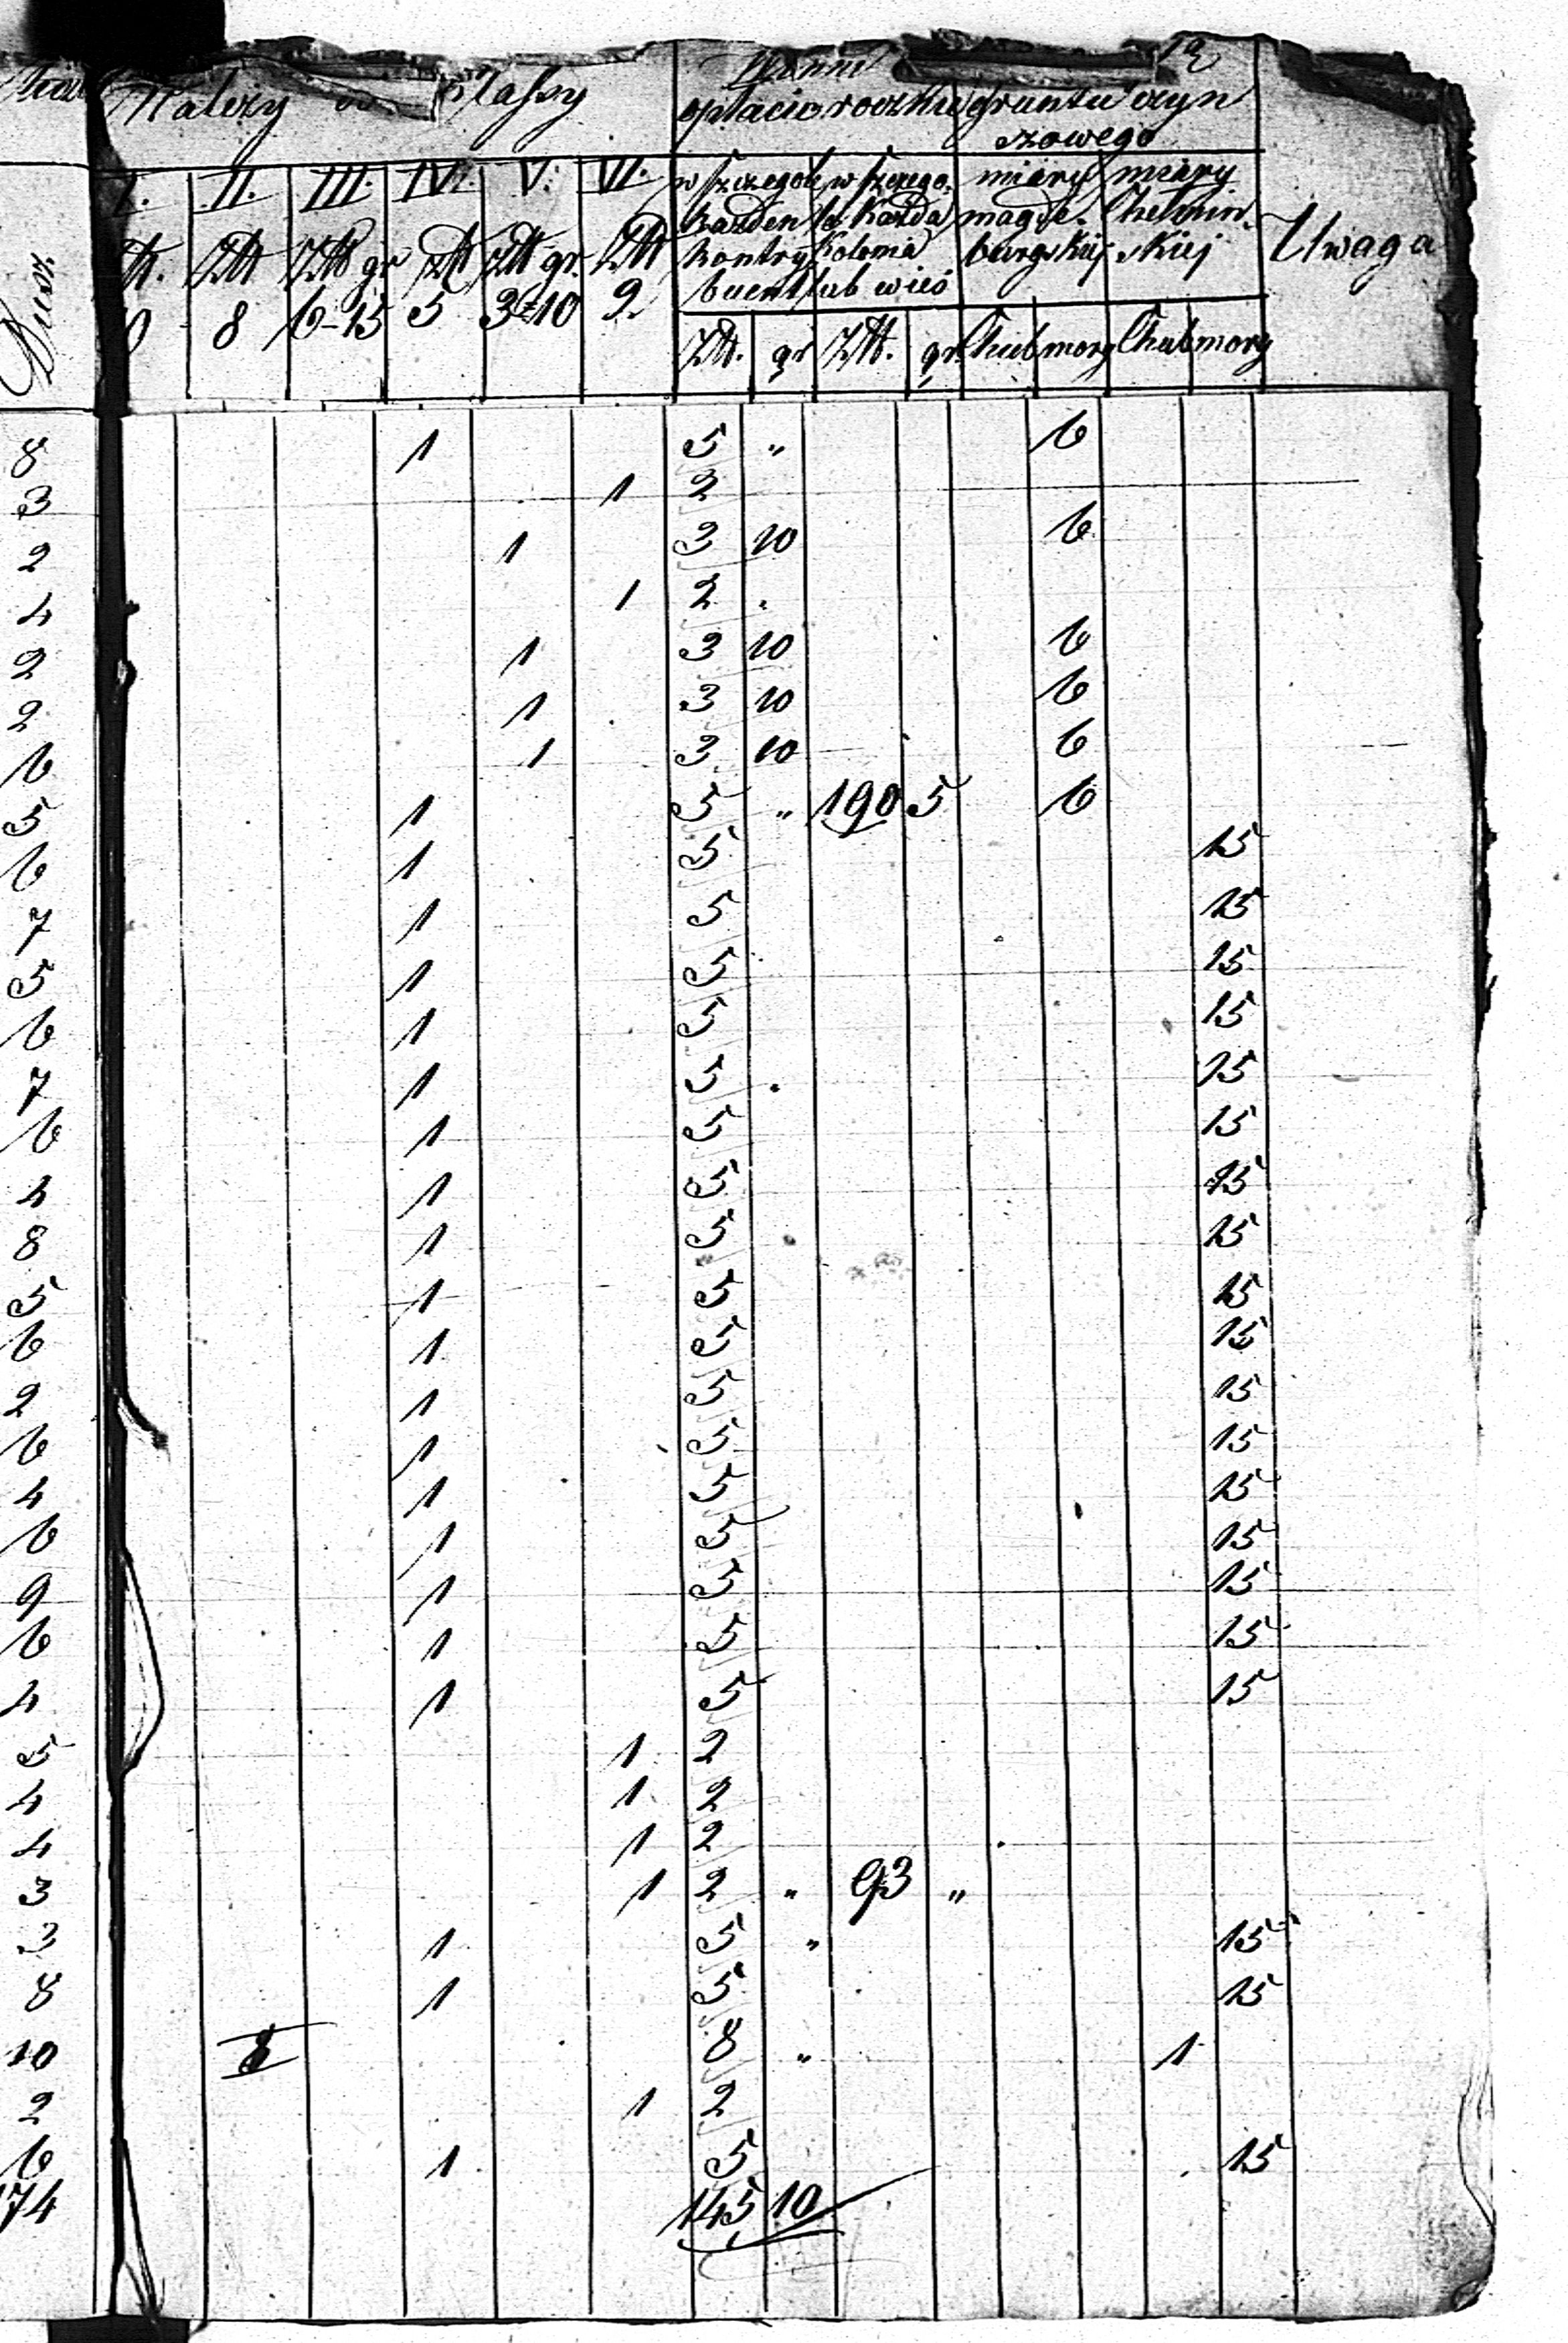 Należy
opłacić rocznie gruntu czyn
szowego
I. II. III. IV. V. VI. w szczegole w szczego miary miary
każden le. każda magde. Chełmin
Ztt Ztt gr Ztt Ztt gr. Ztt kontry Kolonia burgskiej skiej Uwaga
buent lub wieś
8 6-15 5 3-10 2
Ztt. gr Ztt. gr. hub morg hub morg
Dusz
8 1 5 " 6
3 1 2
2 1 3 10 6
4 1 2 .
2 1 3 10 6
2 1 3 10 6
6 1 3 10 6
5 1 5 " 190 5 6
6 1 5 15
7 1 5 15
5 1 5 15
6 1 5 15
7 1 5 . 15
6 1 5 15
4 1 5 15
8 1 5 15
5 1 5 15
6 1 5 15
2 1 5 15
6 1 5 15
4 1 5 15
6 1 5 15
9 1 5 15
6 1 5 15
4 1 5 15
5 1 2
4 1 2
4 1 2
3 1 2 " 93 "
1 5 " 15
8 1 5 15
10 8 " 1
2 1 2
6 1 5 15
174 145 10